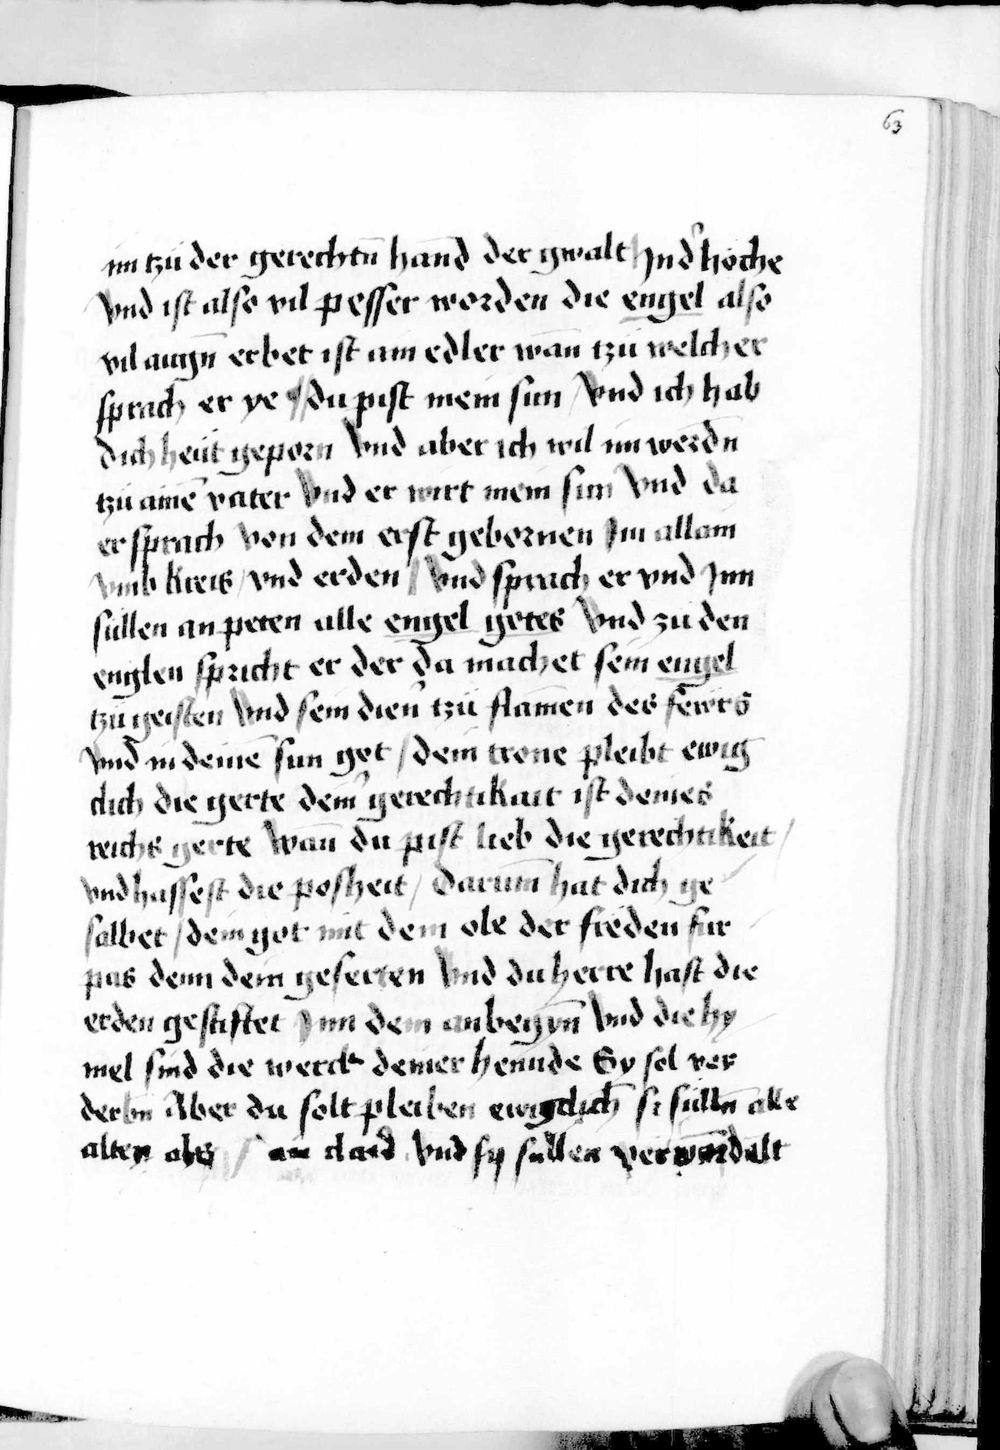 63
im tzu der gerechtn̄ hand der gwalt Jn d' höche
Vnd ist also vil pesser worden die engel also
vil augn̄ erbet ist am edler wan̄ tzu welcher
sprach er ye // du pist mein sun / Vnd ich hab
dich heüt geporn Vnd aber ich wil im werdn̄
tzu ainē vater Vnd er wirt mein sun Vnd da
er sprach von dem erst gebornen Jm allam
vmb kreis / vnd erden / Vnd sprach er vnd Jnn
süllen an peten alle engel gotes Vnd zu den
englen spricht er der da machet sein engel
tzu geisten Vnd sein dien' tzü flāmen des fewrs
Vnd in deinē sun got / dein trone pleibt ewig
clich die gerte dein' gerechtikait ist deines
reichs gerte Wan̄ du pist lieb die gerechtikeit /
vnd hassest die posheit / Darum̄ hat dich ge
salbet / dein got mit dem ole der freden fur
pas denn dein geserten Vnd du herre hast die
erden gestiftet Jnn dem anbegyn̄ Vnd die hy
mel sind die werck deiner hennde Sy sol ver
derbn̄ Aber du solt pleiben ewigclich si sülln̄ alle
alten als / ain claid Vnd sy sullen verwandelt